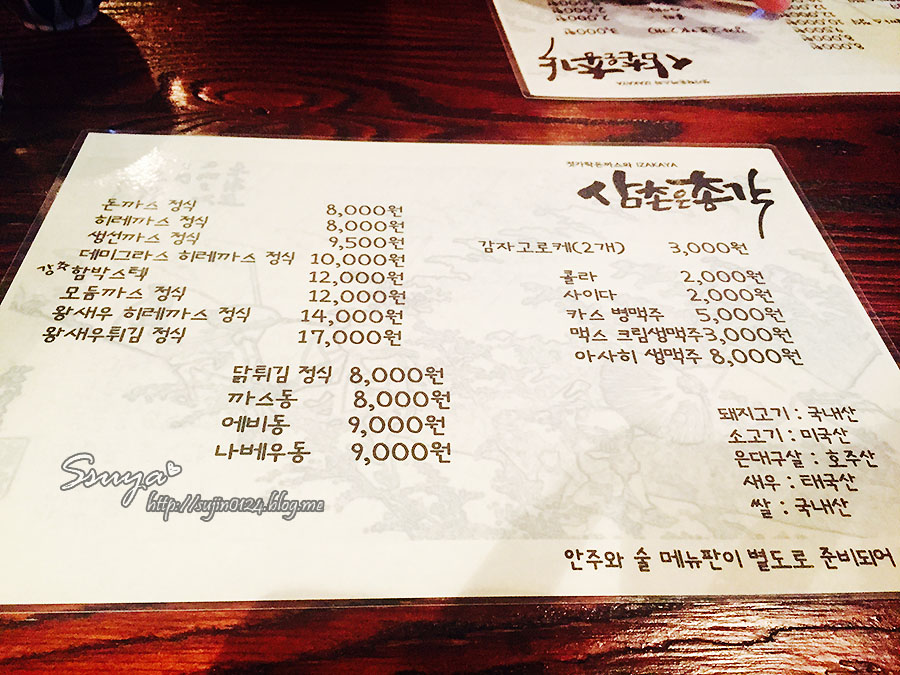 젓가락돈까스와 IZAKAYA
삼촌은총각
돈까스 정식 8,000원
히레까스 정식 8,000원
생선까스 정식 9,500원
데미그라스 히레까스 정식 10,000원
강추 함박스텍 12,000원
모듬까스 정식 12,000원
왕새우 히레까스 정식 14,000원
왕새우튀김 정식 17,000원
닭튀김 정식 8,000원
까스동 8,000원
에비동 9,000원
나베우동 9,000원
감자고로케(2개) 3,000원
콜라 2,000원
사이다 2,000원
카스 병맥주 5,000원
맥스 크림생맥주 3,000원
아사히 생맥주 8,000원
돼지고기 : 국내산
소고기 : 미국산
은대구살 : 호주산
새우 : 태국산
쌀 : 국내산
안주와 술 메뉴판이 별도로 준비되어
Ssuya
http://sujin0124.blog.me